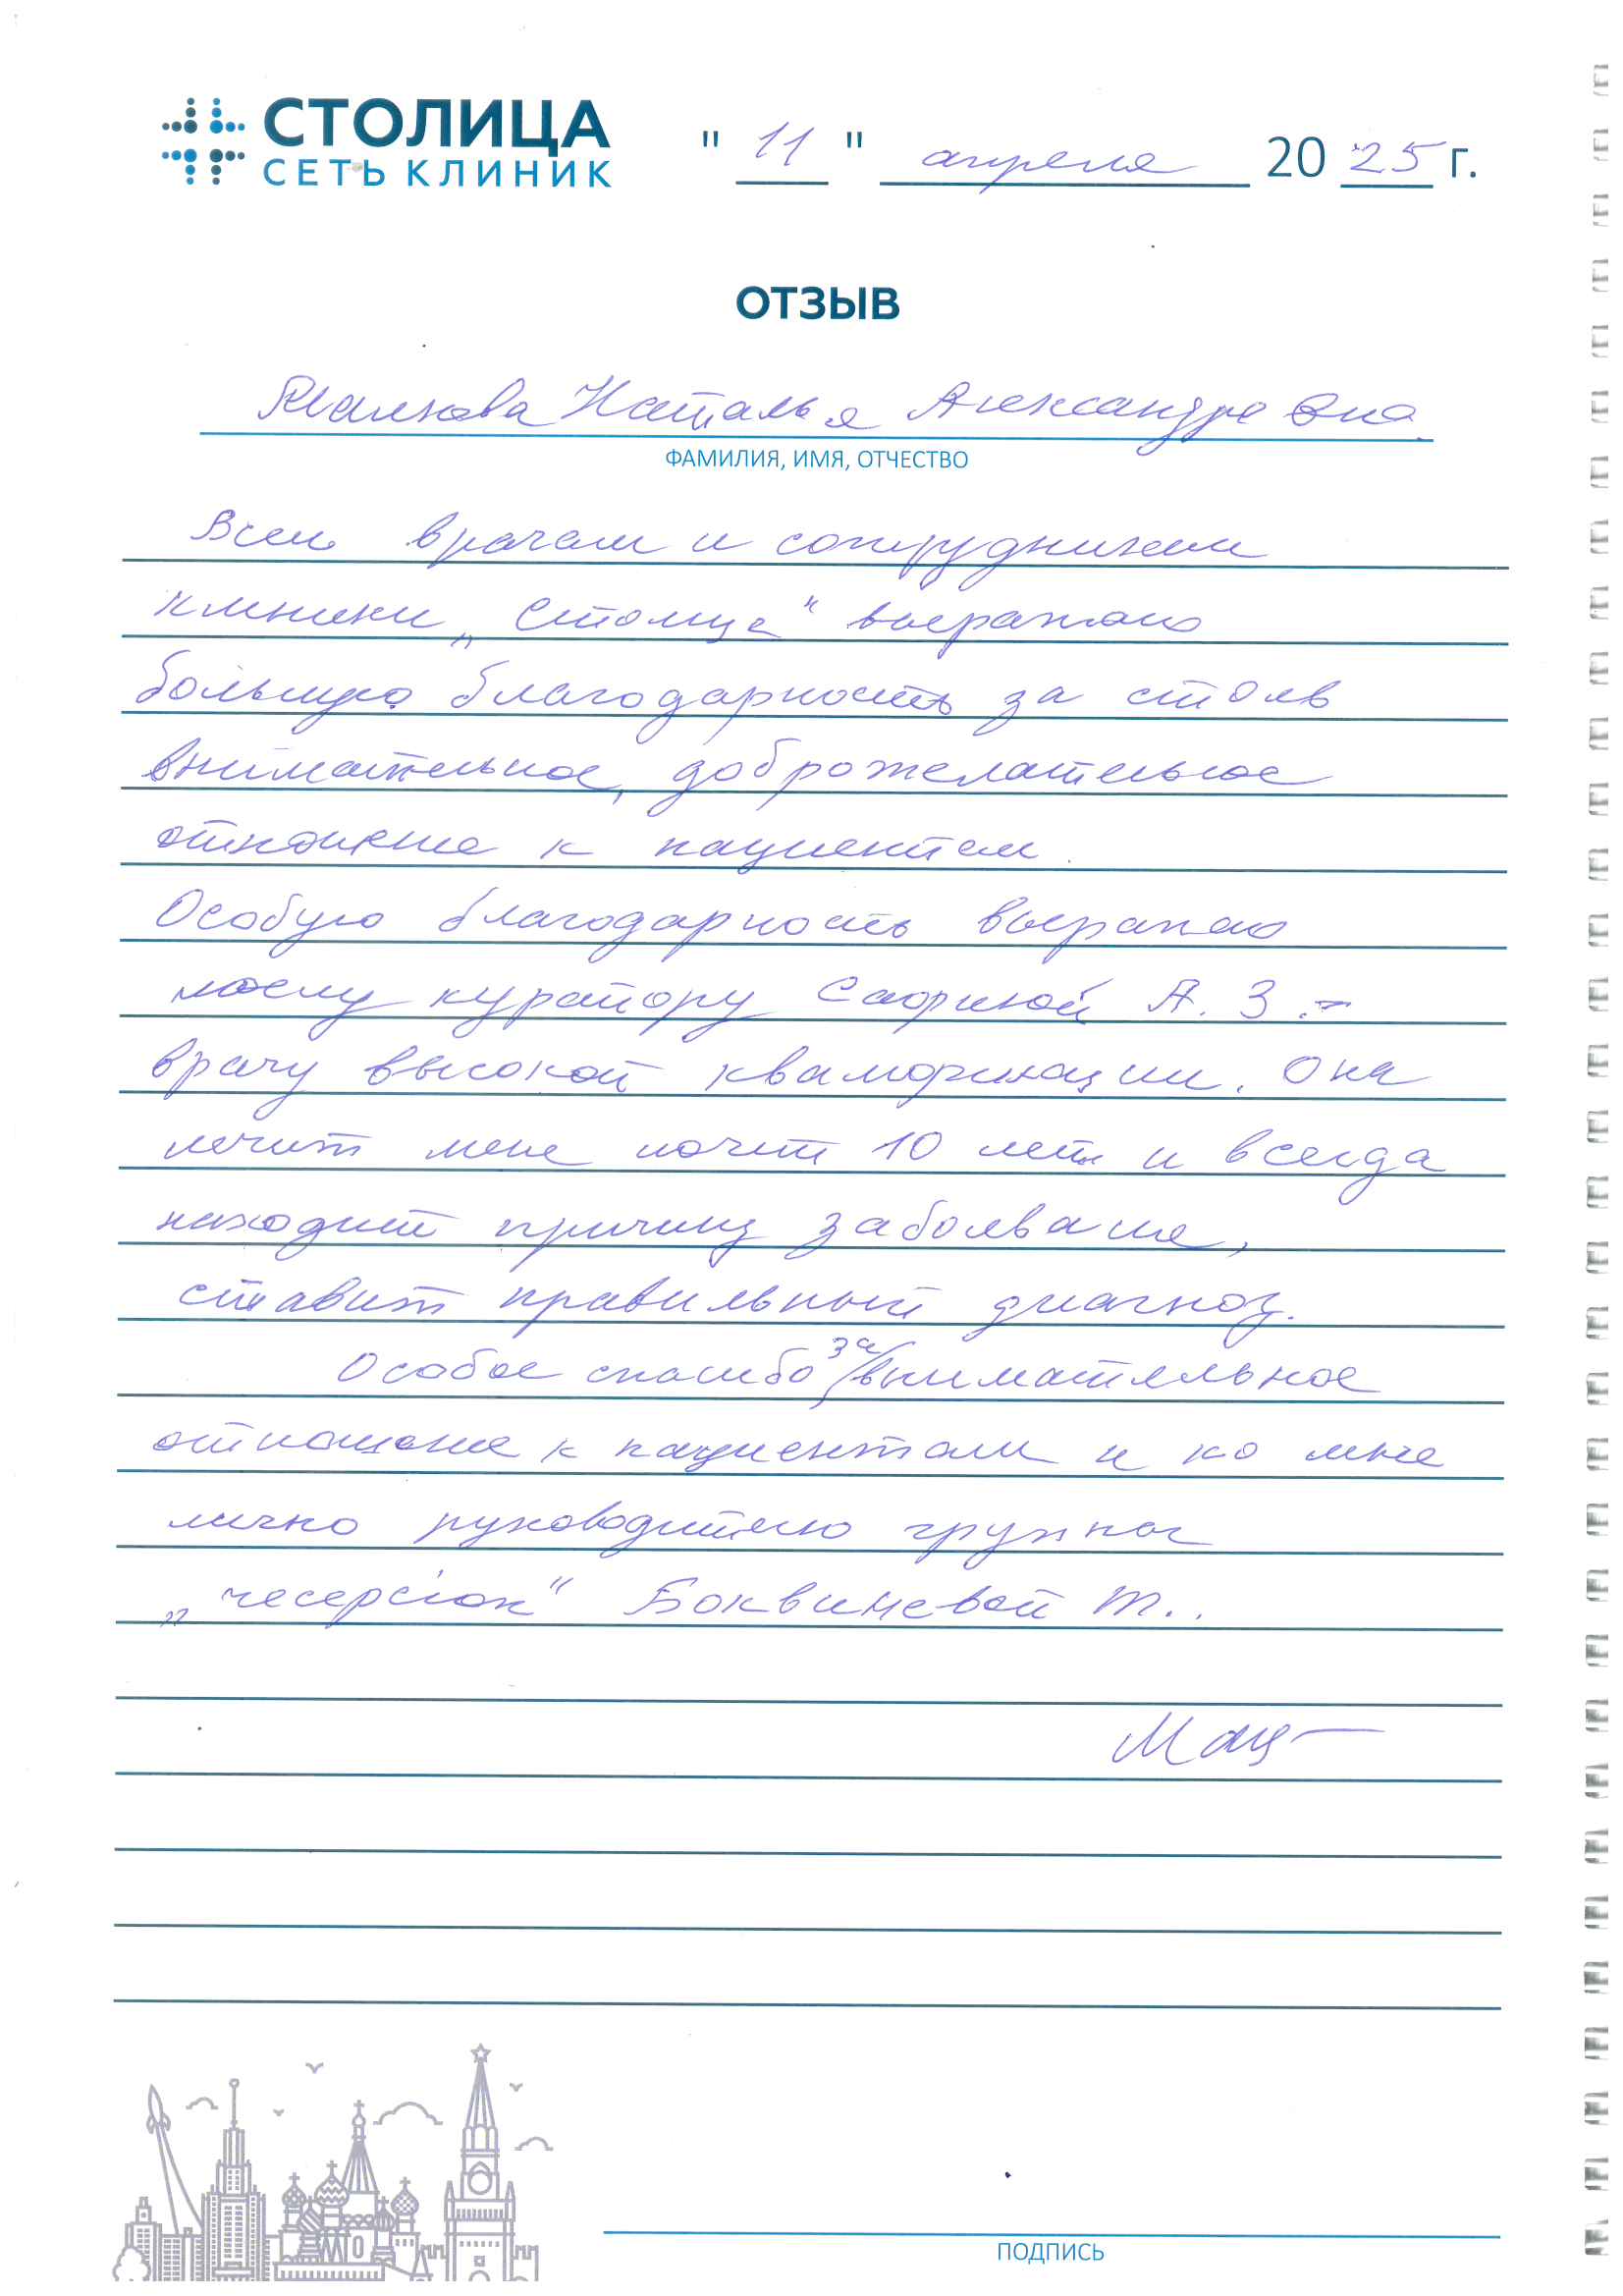 СТОЛИЦА
СЕТЬ КЛИНИК
" 11 " апреля 20 25 г.
ОТЗЫВ
Малкова Наталья Александровна
ФАМИЛИЯ, ИМЯ, ОТЧЕСТВО
Всем врачам и сотрудникам
клиники „Столица“ выражаю
большую благодарность за столь
внимательное, доброжелательное
отношение к пациентам.
Особую благодарность выражаю
моему куратору Сафиной А. З. –
врачу высокой квалификации. Она
лечит меня почти 10 лет и всегда
находит причину заболевания,
ставит правильный диагноз.
Особое спасибо за внимательное
отношение к пациентам и ко мне
лично руководителю группы
Т.
ПОДПИСЬ